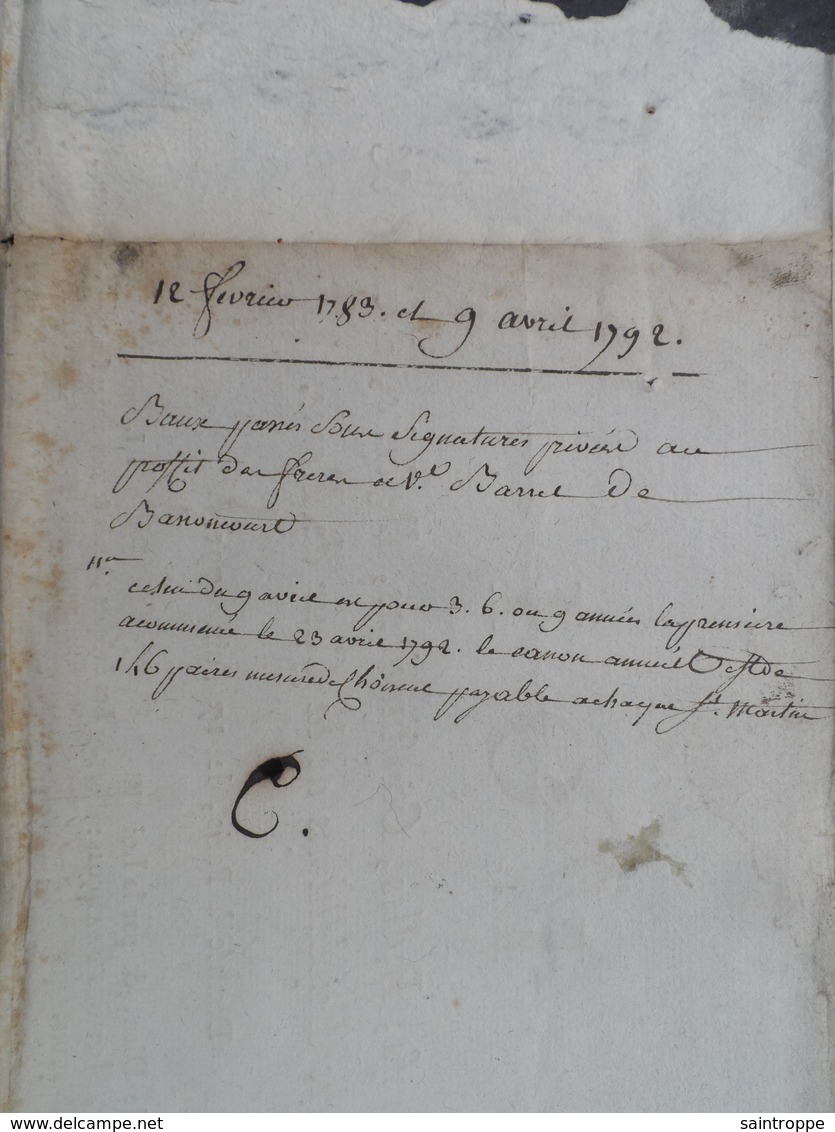 12 fevrier 1783. et 9 avril 1792.
Baux passés sous signatures privées au
proffit des freres et Ve. Barret de
Banoncourt
celui du 9 avril est pour 3. 6. ou 9 années la premiere
a commencé le 23 avril 1792. le canon annuel est de
146 paires mesure de payable a chaque St. Martin
C.
delcampe.net
saintroppe